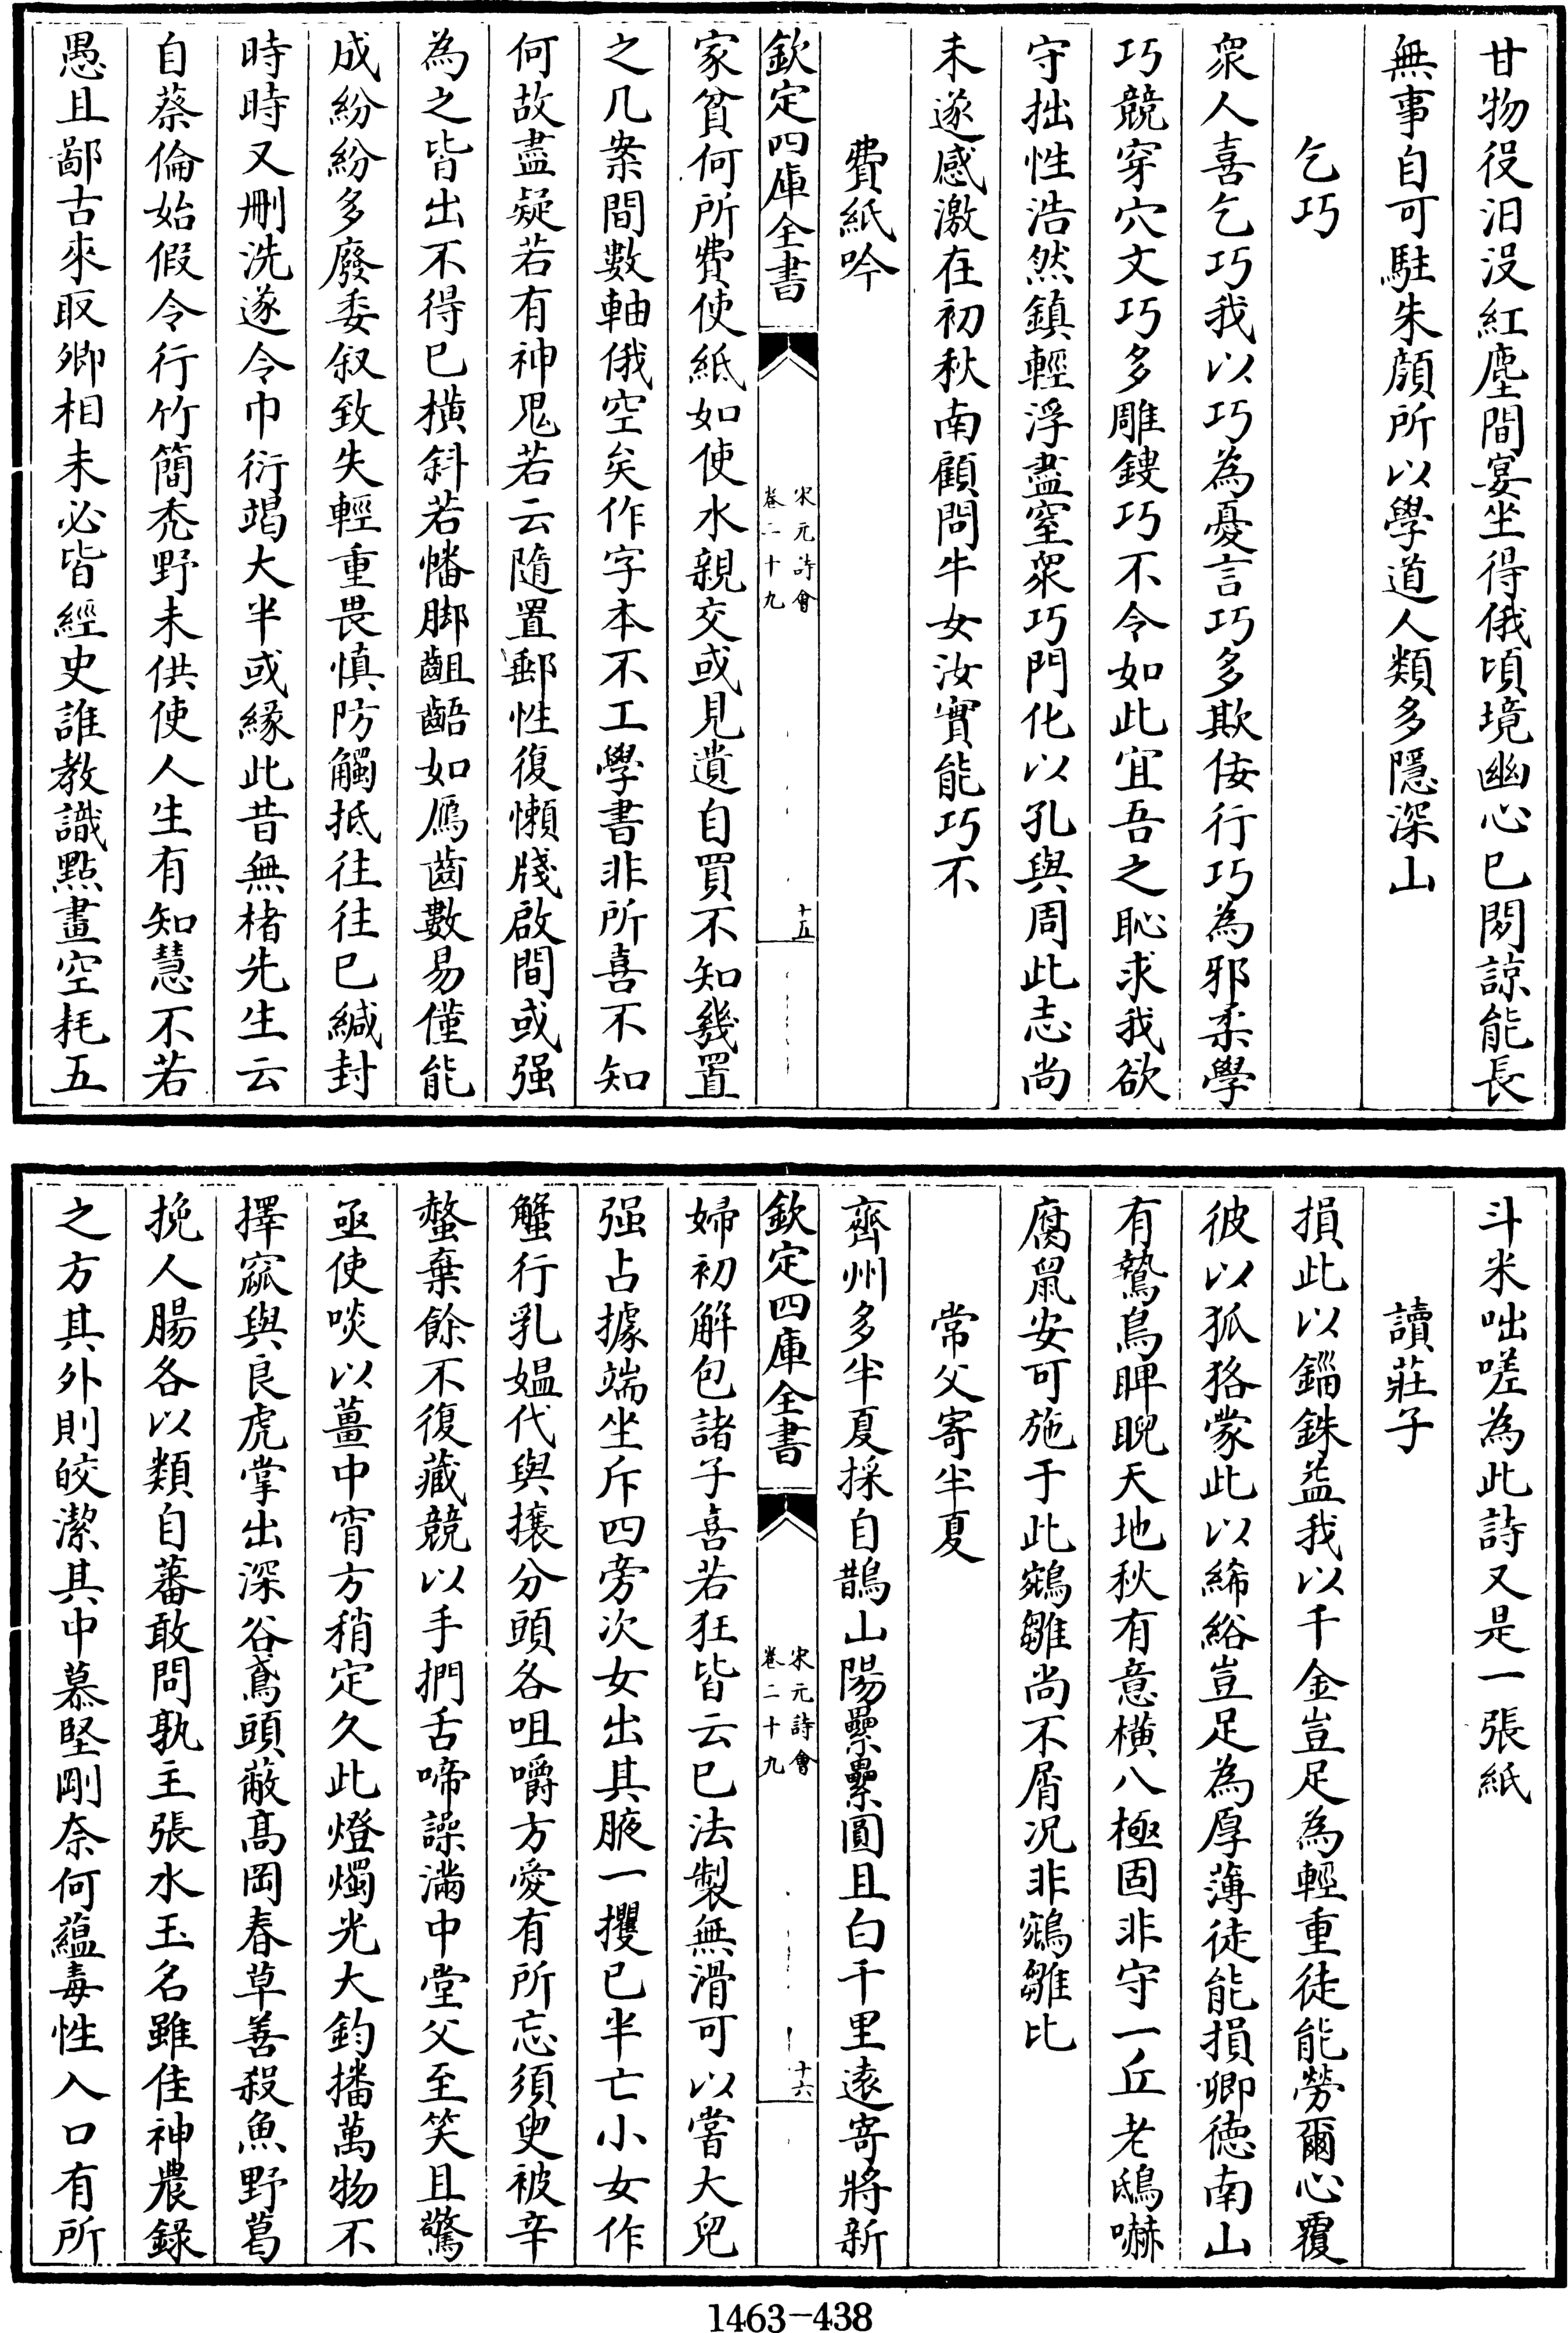 甘物役汨沒紅塵間宴坐得俄頃境幽心已閑諒能長
無事自可駐朱顔所以學道人類多隱深山
乞巧
衆人喜乞巧我以巧為憂言巧多欺佞行巧為邪柔學
巧競穿穴文巧多雕鏤巧不令如此宜吾之恥求我欲
守拙性浩然鎮輕浮盡窒衆巧門化以孔與周此志尚
未遂感激在初秋南顧問牛女汝實能巧不
費紙吟
欽定四庫全書
宋元詩會
卷二十九
十五
家貧何所費使紙如使水親交或見遺自買不知幾置
之几案間數軸俄空矣作字本不工學書非所喜不知
何故盡疑若有神鬼若云隨置郵性復懶牋啟間或强
為之皆出不得已橫斜若幡脚齟齬如鴈齒數易僅能
成紛紛多廢委叙致失輕重畏慎防觸抵往往已緘封
時時又刪洗遂令巾衍竭大半或緣此昔無楮先生云
自蔡倫始假令行竹簡禿野未供使人生有知慧不若
愚且鄙古來取卿相未必皆經史誰教識點畫空耗五
斗米咄嗟為此詩又是一張紙
讀莊子
損此以錙銖益我以千金豈足為輕重徒能勞爾心覆
彼以狐狢蒙此以絺綌豈足為厚薄徒能損卿德南山
有鷙鳥睥睨天地秋有意橫八極固非守一丘老鴟嚇
腐鼠安可施于此鵷雛尚不屑况非鵷雛比
常父寄半夏
齊州多半夏採自鵲山陽纍纍圓且白千里逺寄將新
欽定四庫全書
宋元詩會
卷二十九
十六
婦初解包諸子喜若狂皆云已法製無滑可以嘗大兒
强占據端坐斥四旁次女出其腋一攫已半亡小女作
蟹行乳媼代與攘分頭各咀嚼方愛有所忘須臾被辛
螫棄餘不復藏競以手捫舌啼譟滿中堂父至笑且驚
亟使啖以薑中宵方稍定久此燈燭光大鈞播萬物不
擇窳與良虎掌出深谷鳶頭蔽髙岡春草善殺魚野葛
挽人腸各以類自蕃敢問孰主張水玉名雖佳神農錄
之方其外則皎潔其中慕堅剛奈何藴毒性入口有所
1463-438